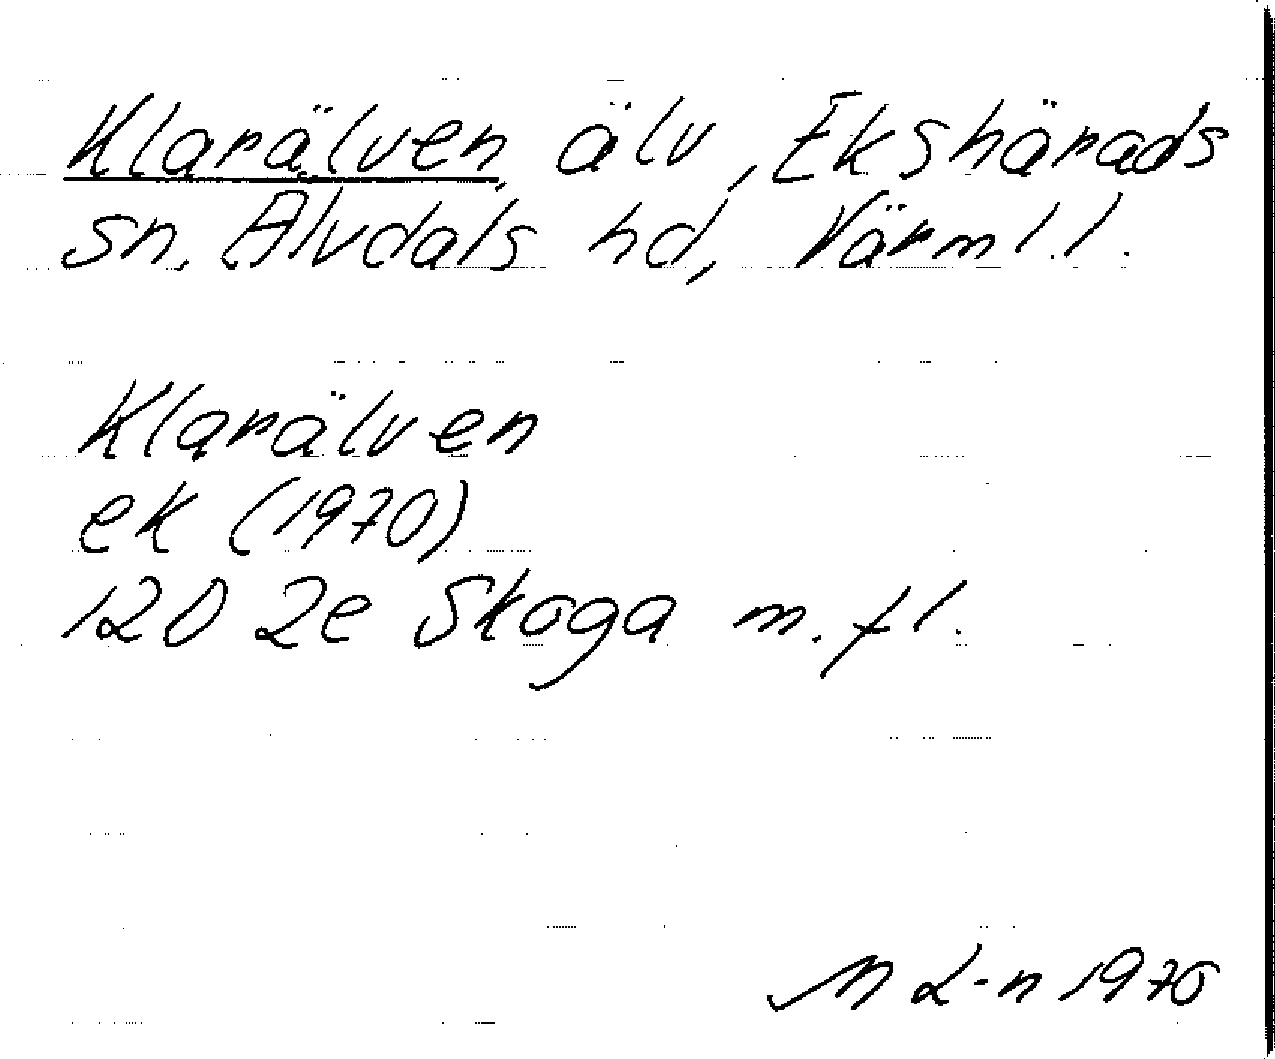 Klarälven, älv, Ekshärads
sn, Älvdals hd, Värml l.
Klarälven
ek (1970)
12D 2e Skoga m. fl.
M L-n 1970